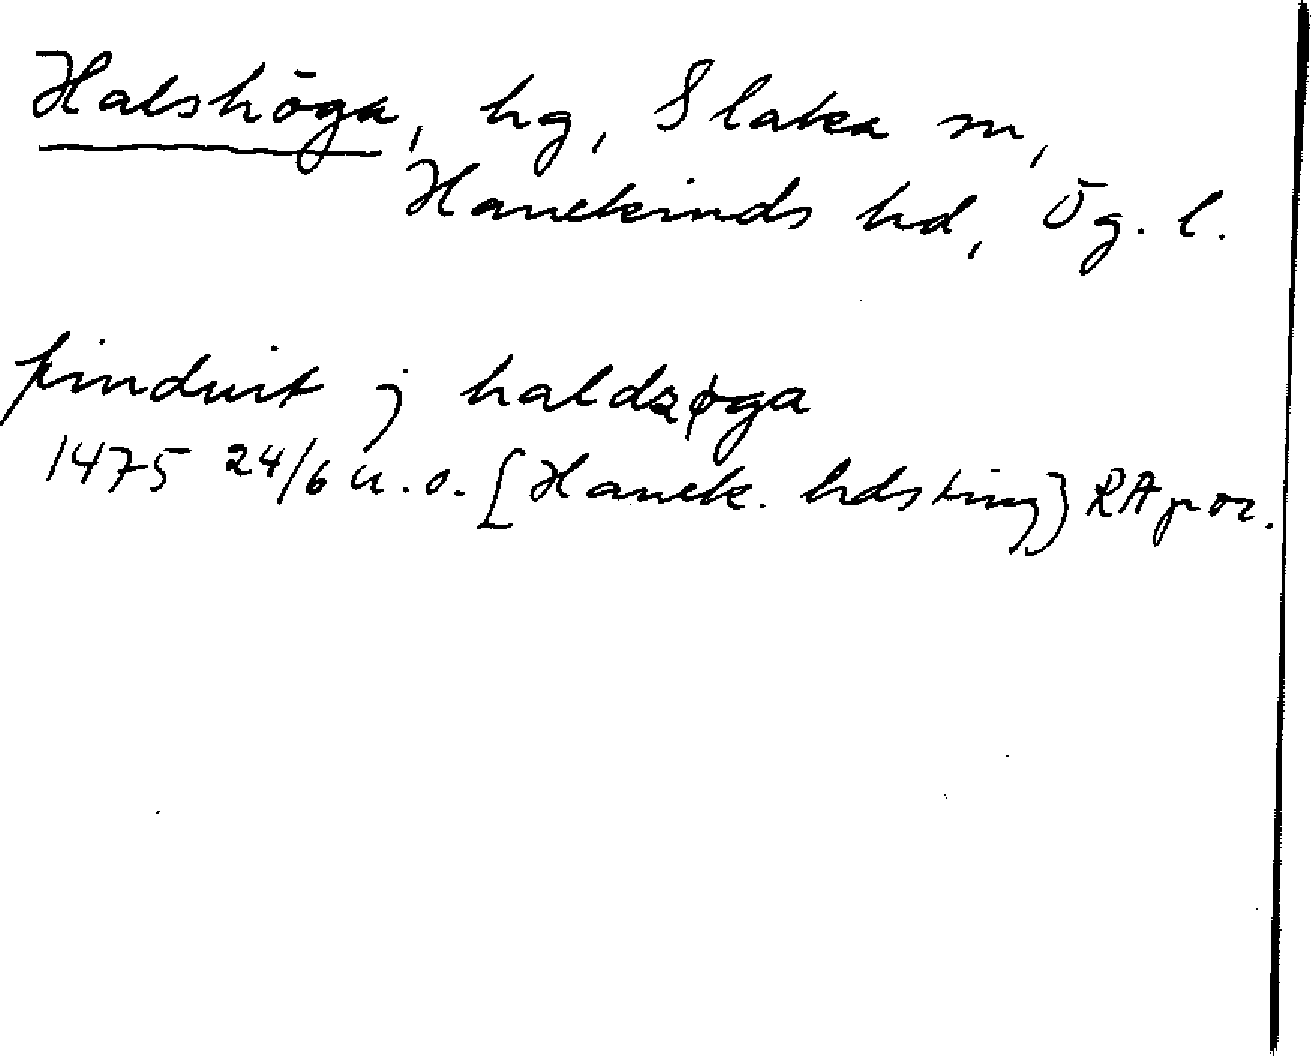 Halshöga, hg, Slaka sn,
Hanekinds hd, Ög. l.
finduit j haldzøga
1475 24/6 u.o. [Hanek. hdsting] RAp or.